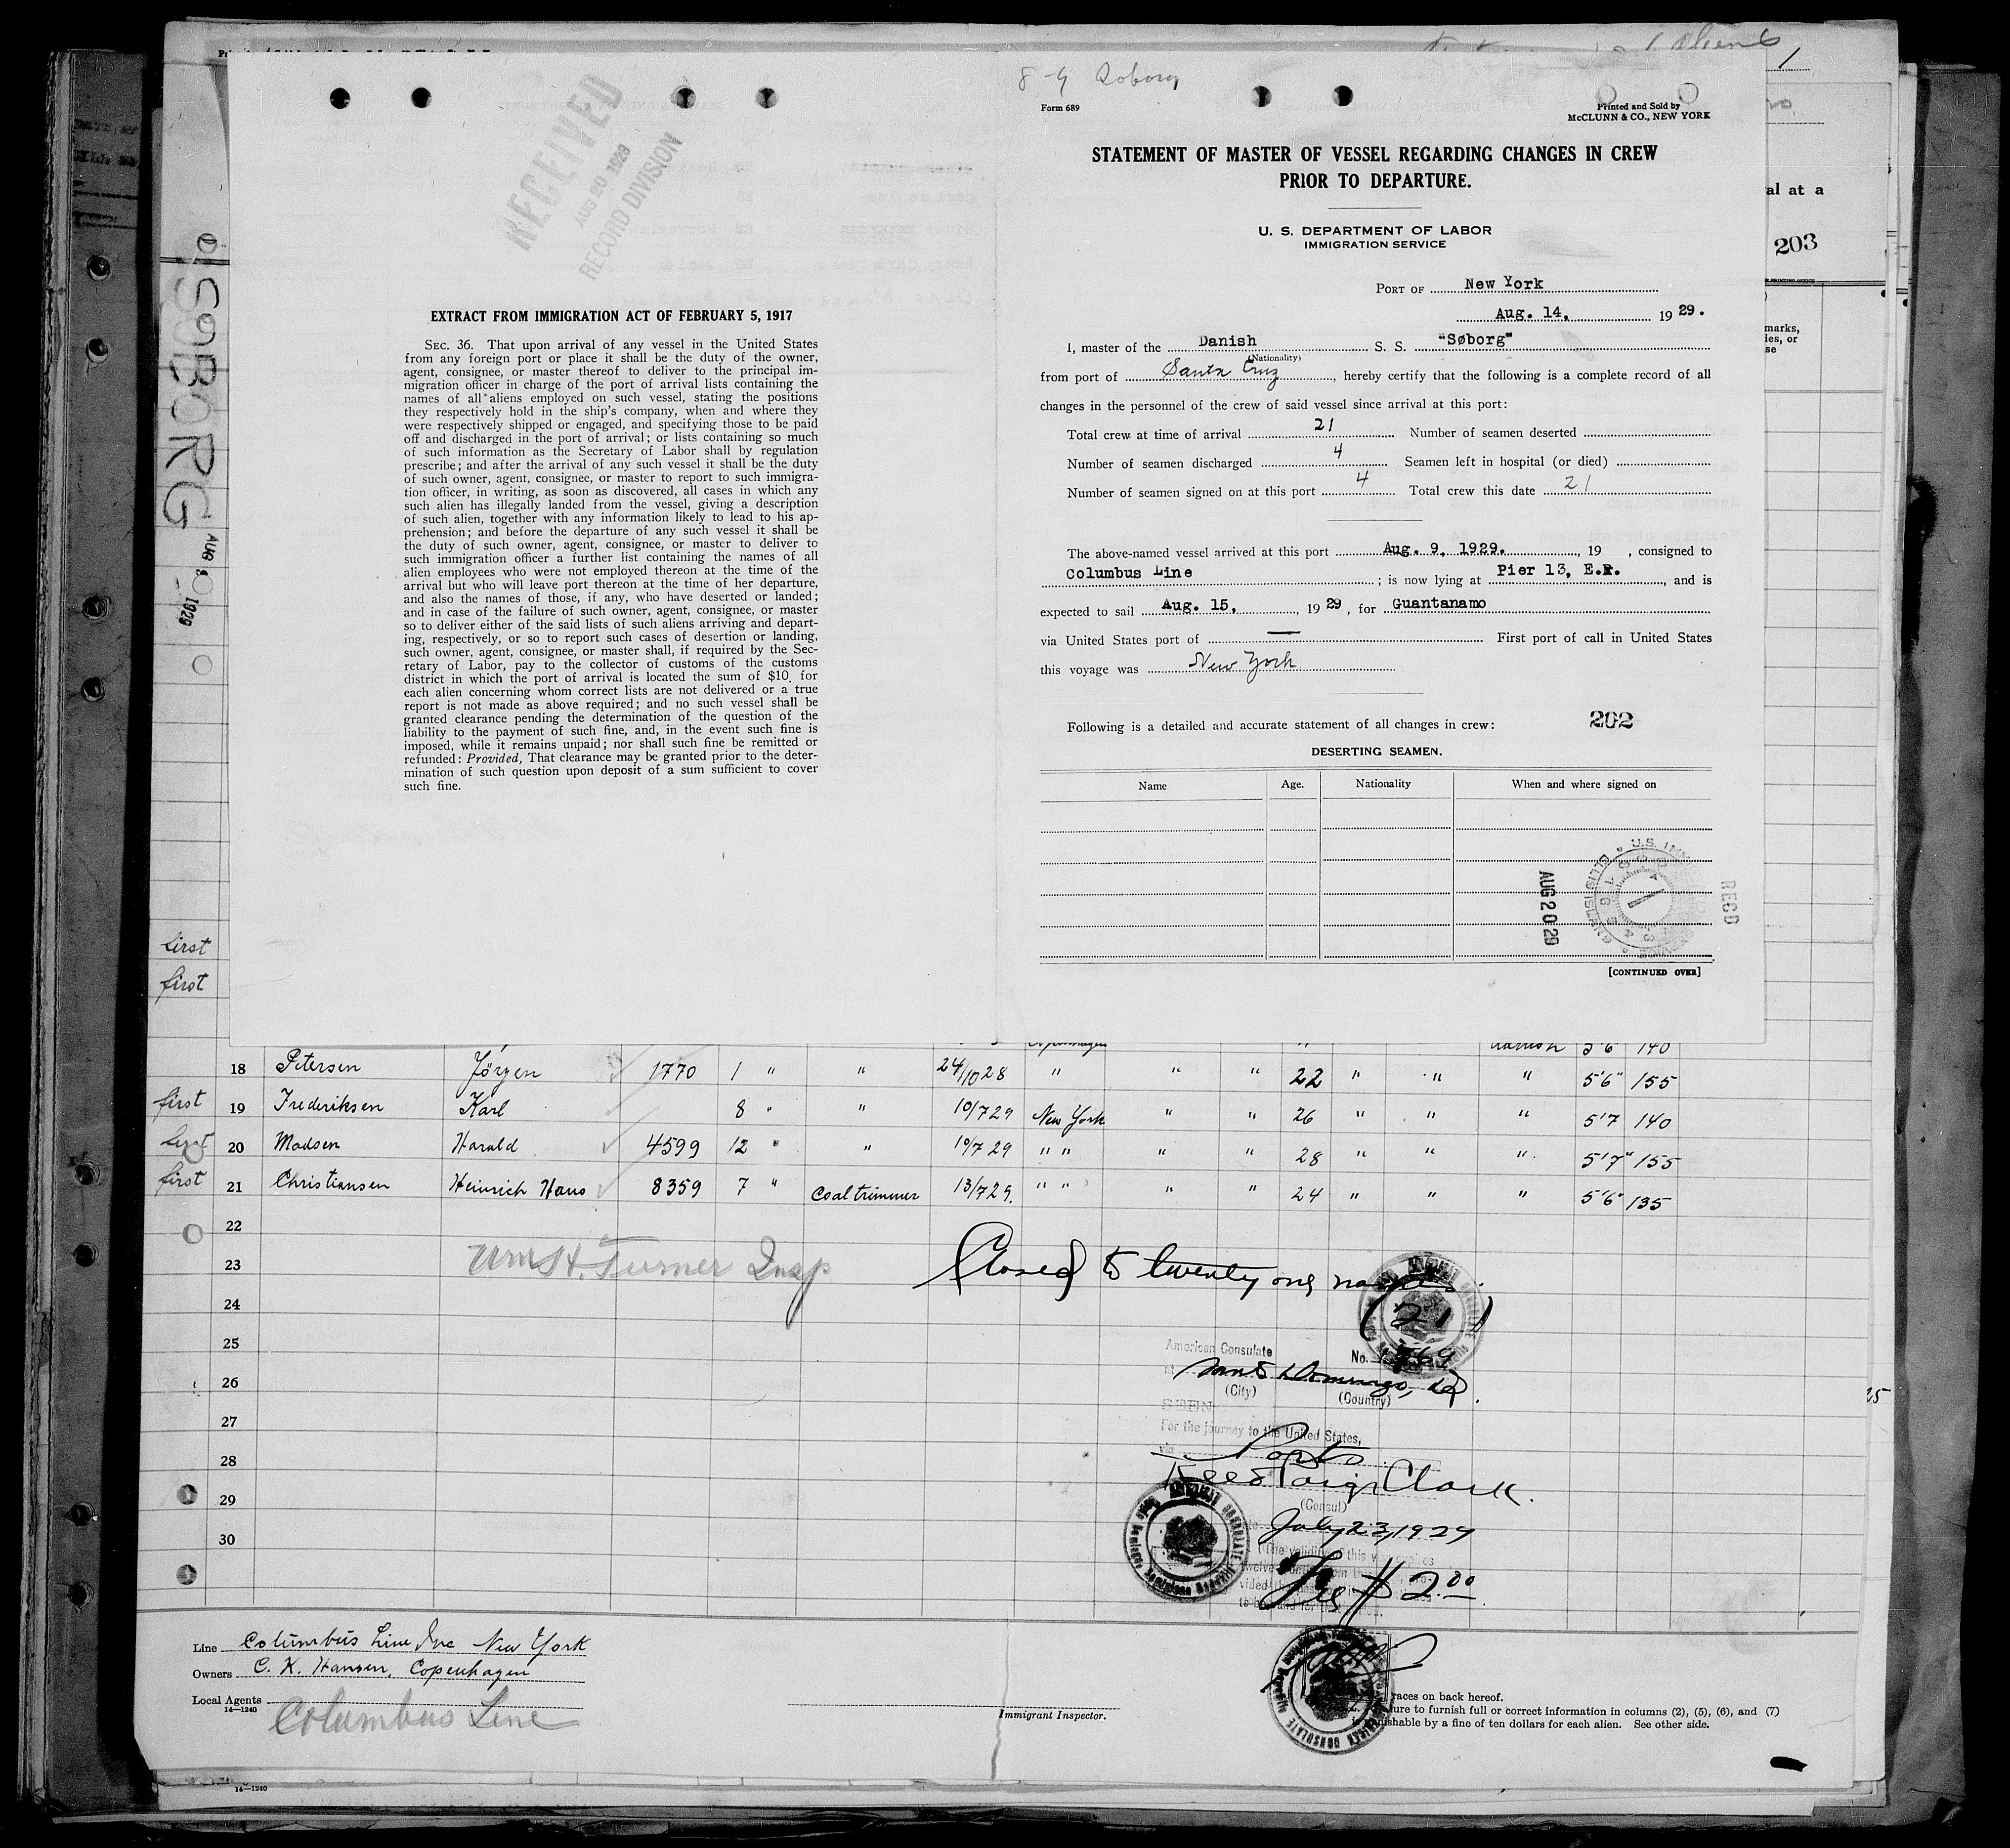 8-9 Soborg
RECEIVED
AUG 20 1929
RECORD DIVISION
EXTRACT FROM IMMIGRATION ACT OF FEBRUARY 5, 1917
SEC. 36. That upon arrival of any vessel in the United States
from any foreign port or place it shall be the duty of the owner,
agent, consignee, or master thereof to deliver to the principal im-
migration officer in charge of the port of arrival lists containing the
names of all aliens employed on such vessel, stating the positions
they respectively hold in the ship's company, when and where they
were respectively shipped or engaged, and specifying those to be paid
off and discharged in the port of arrival; or lists containing so much
of such information as the Secretary of Labor shall by regulation
prescribe; and after the arrival of any such vessel it shall be the duty
of such owner, agent, consignee, or master to report to such immigra-
tion officer, in writing, as soon as discovered, all cases in which any
such alien has illegally landed from the vessel, giving a description
of such alien, together with any information likely to lead to his ap-
prehension; and before the departure of any such vessel it shall be
the duty of such owner, agent, consignee, or master to deliver to
such immigration officer a further list containing the names of all
alien employees who were not employed thereon at the time of the
arrival but who will leave port thereon at the time of her departure,
and also the names of those, if any, who have deserted or landed;
and in case of the failure of such owner, agent, consignee, or master
so to deliver either of the said lists of such aliens arriving and depart-
ing, respectively, or so to report such cases of desertion or landing,
such owner, agent, consignee, or master shall, if required by the Sec-
retary of Labor, pay to the collector of customs of the customs
district in which the port of arrival is located the sum of $10. for
each alien concerning whom correct lists are not delivered or a true
report is not made as above required; and no such vessel shall be
granted clearance pending the determination of the question of the
liability to the payment of such fine, and, in the event such fine is
imposed, while it remains unpaid; nor shall such fine be remitted or
refunded: Provided, That clearance may be granted prior to the deter-
mination of such question upon deposit of a sum sufficient to cover
such fine.
Form 689
Printed and Sold by
McCLUNN & CO., NEW YORK
STATEMENT OF MASTER OF VESSEL REGARDING CHANGES IN CREW
PRIOR TO DEPARTURE.
U. S. DEPARTMENT OF LABOR
IMMIGRATION SERVICE
PORT OF New York
Aug. 14, 19 29.
I, master of the Danish S. S. "Søborg"
(Nationality)
from port of Santa Cruz, hereby certify that the following is a complete record of all
changes in the personnel of the crew of said vessel since arrival at this port:
Total crew at time of arrival 21 Number of seamen deserted
Number of seamen discharged 4 Seamen left in hospital (or died)
Number of seamen signed on at this port 4 Total crew this date 21
The above-named vessel arrived at this port Aug. 9, 1929., 19 , consigned to
Columbus Line; is now lying at Pier 13, E.R., and is
expected to sail Aug. 15, 19 29, for Guantanamo
via United States port of — First port of call in United States
this voyage was New York
Following is a detailed and accurate statement of all changes in crew: 202
DESERTING SEAMEN.
Name Age. Nationality When and where signed on
AUG 20 29
REC'D
[CONTINUED OVER]
al at a
203
marks,
ies, or
se
SOBORG
AUG 9 1929
first
first
Copenhagen " danish 5'6 140
18 Petersen Jörgen 1770 1 " " 24/10 28 " " " 22 " " " 5'6" 155
first 19 Frederiksen Karl 8 " " 10/7 29 New York " " 26 " " " 5'7 140
first 20 Madsen Harald 4599 12 " " 10/7 29 " " " " 28 " " " 5'7" 155
first 21 Christiansen Heinrich Hans 8359 7 " Coaltrimmer 13/7 29. " " " " 24 " " " 5'6" 135
22
23 Wm H. Turner Insp Closed to twenty one names
24 (21)
25 American Consulate No.
at Santo Domingo, D.R.
26 (City) (Country)
SEEN
27 For the journey to the United States,
via Ports
28 Reed Paige Clark.
29 (Consul)
July 23, 1929
30 (The validity of this visa expires
Fee $2.00
Line Columbus Line Inc New York
Owners C. K. Hansen, Copenhagen
Local Agents Columbus Line
14—1240
Immigrant Inspector.
races on back hereof.
ure to furnish full or correct information in columns (2), (5), (6), and (7)
is punishable by a fine of ten dollars for each alien. See other side.
14—1240